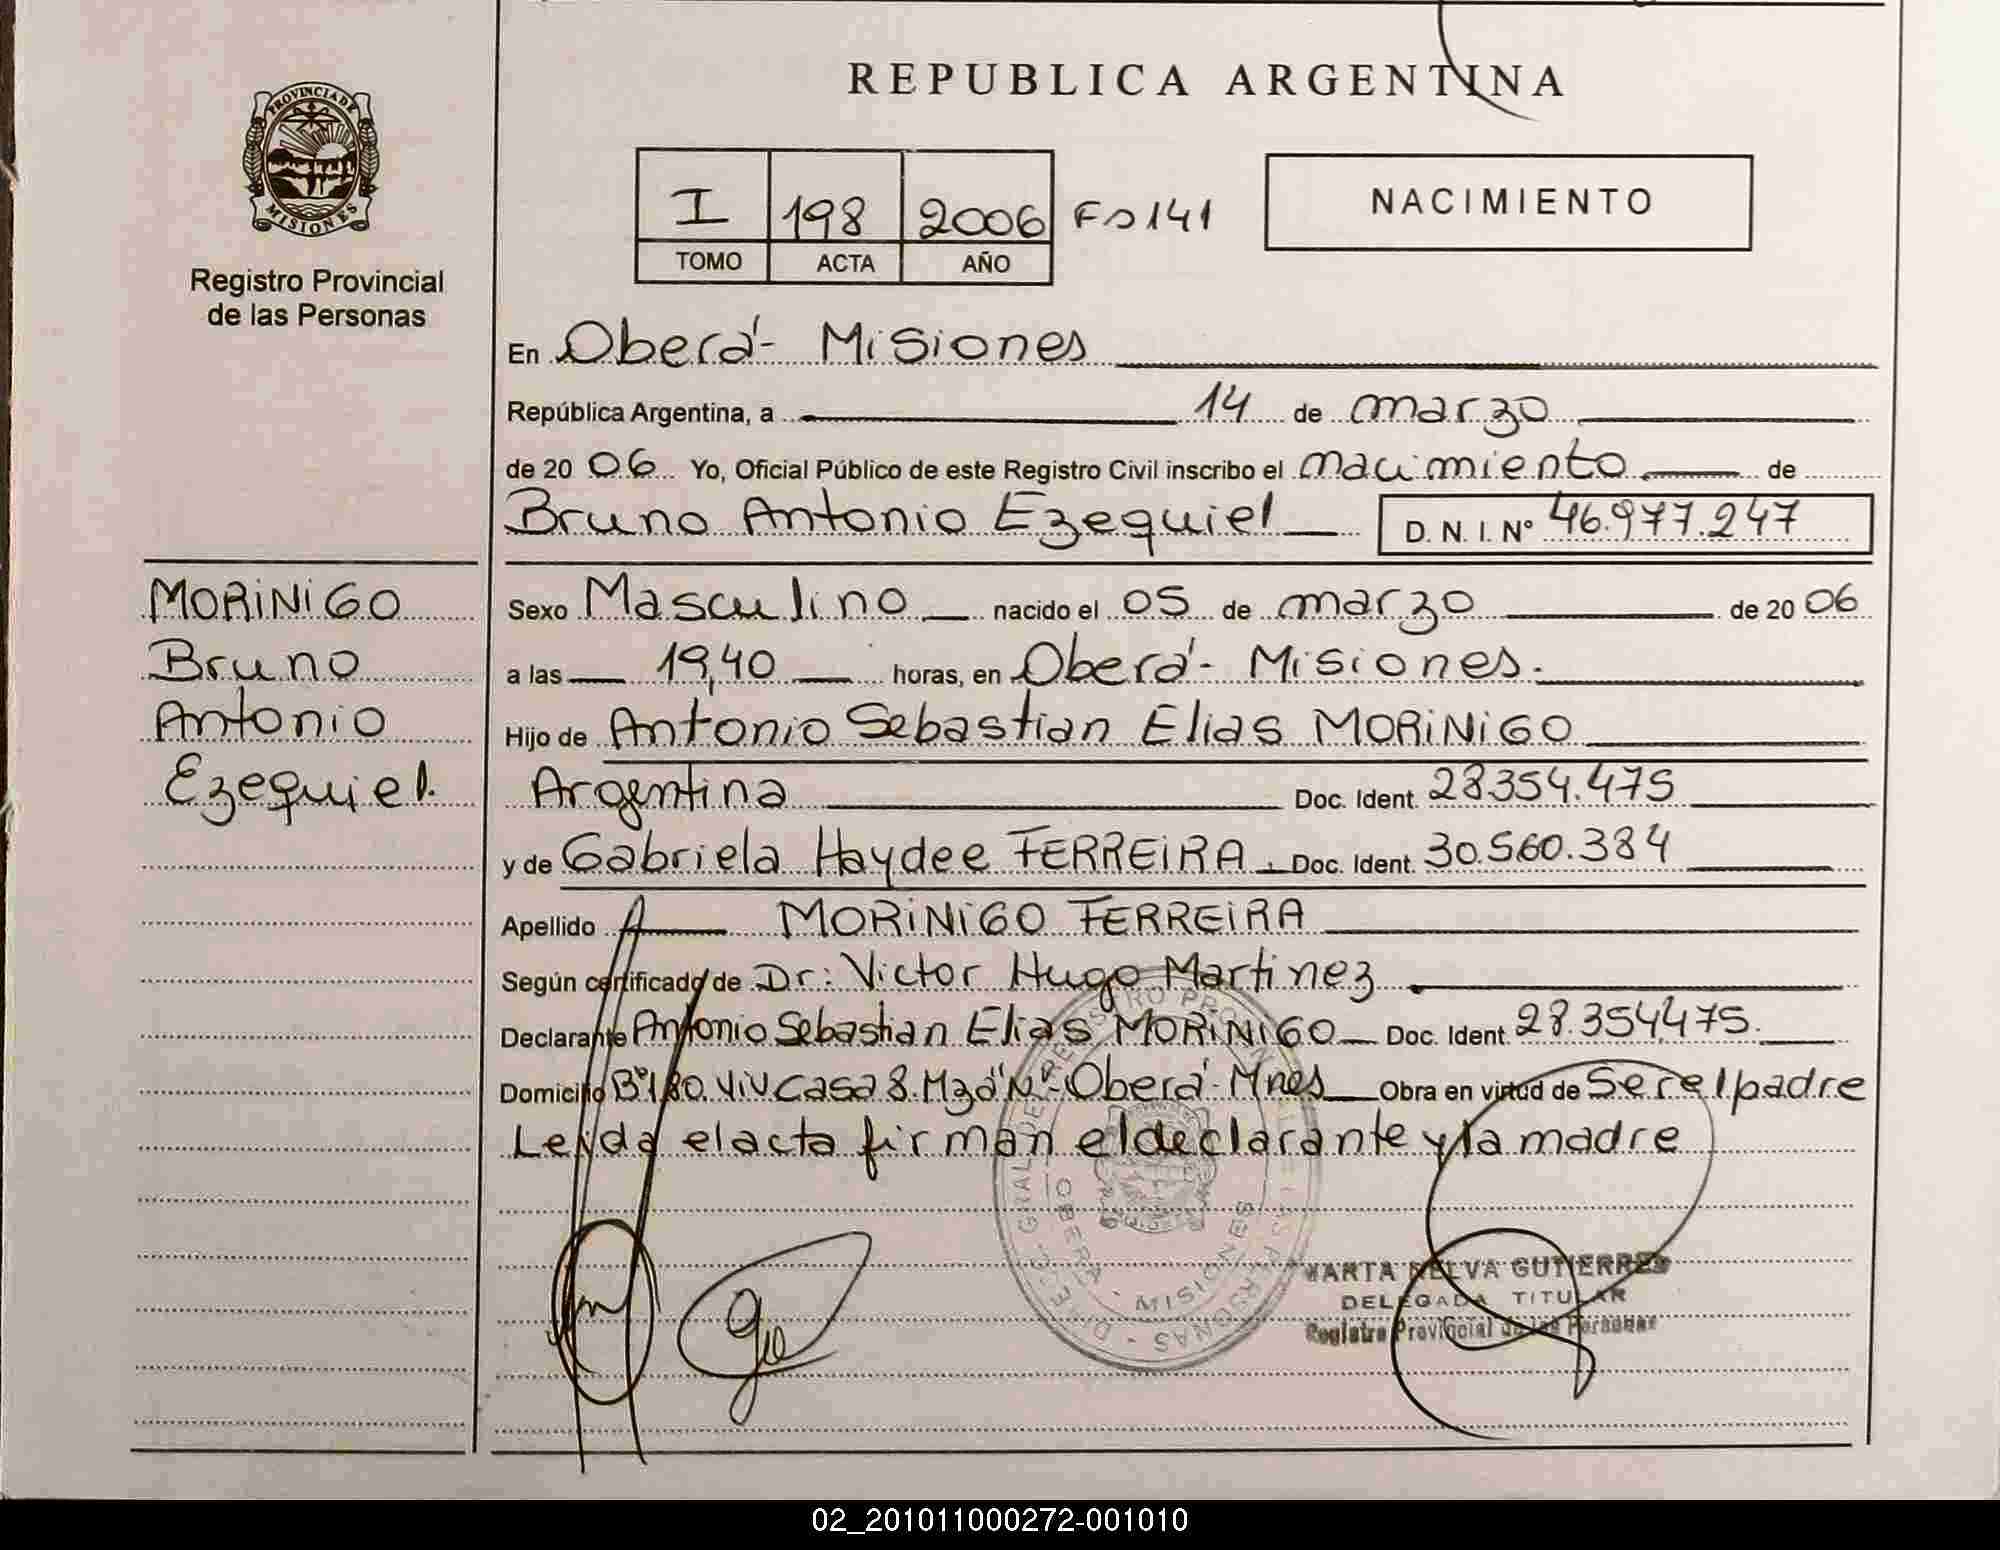 REPUBLICA ARGENTINA
PROVINCIA DE
MISIONES
Registro Provincial
de las Personas
I 198 2006 Fo 141
TOMO ACTA AÑO
NACIMIENTO
En Oberá - Misiones
República Argentina, a 14 de marzo
de 20 06 Yo, Oficial Público de este Registro Civil inscribo el nacimiento de
Bruno Antonio Ezequiel D. N. I. Nº 46.977.247
MORiNiGO
Bruno
Antonio
Ezequiel.
Sexo Masculino nacido el 05 de marzo de 20 06
a las 19,40 horas, en Oberá - Misiones.
Hijo de Antonio Sebastian Elias MORiNiGO
Argentina Doc. Ident. 28.354.475
y de Gabriela Haydee FERREiRA. Doc. Ident. 30.560.384
Apellido MORiNiGO FERREiRA
Según certificado de Dr: Victor Hugo Martinez
Declarante Antonio Sebastian Elias MORiNiGO Doc. Ident. 28.354.475.
Domicilio Bº 180 Viv Casa 8 Mza "N" - Oberá - Mnes Obra en virtud de Ser el padre
Leida el acta firman el declarante y la madre
OBERA - MISIONES
MARTA NELVA GUTIERREZ
DELEGADA TITULAR
Registro Provincial de las Personas
02_201011000272-001010